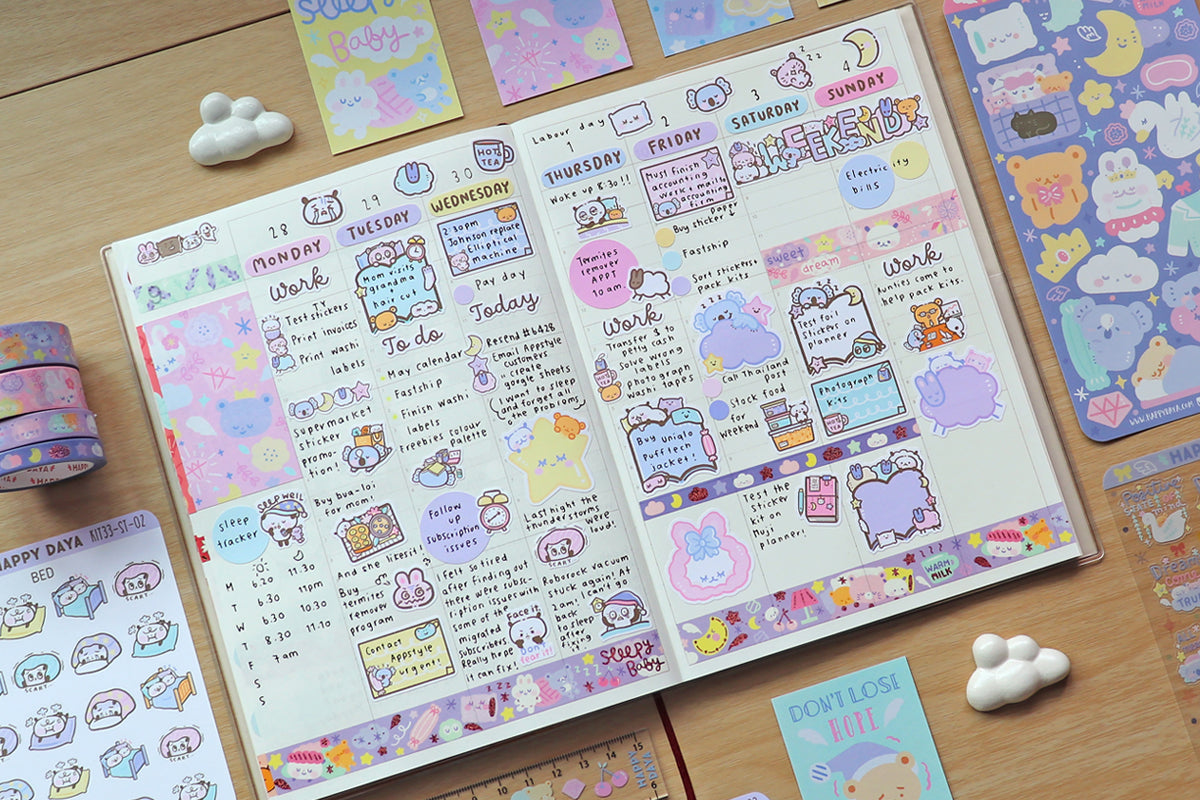 Sleepy
Baby
MILK
28
29
30
HOT TEA
MONDAY
TUESDAY
WEDNESDAY
Work
TY
Test stickers
Print invoices
Print washi
labels
Supermarket
sticker
promo-
tion!
Buy bua-loi
for mom!
And she likes it!
Buy
termites
remover
program
Contact
Appstyle
urgent!
Mom visits
grandma +
hair cut
To do
May calendar
Fastship
Finish washi
labels
Freebies colour
palette
Follow
up
subscription
issues
I felt so tired
after finding out
there were subsc-
ription issues with
some of the
migrated
subscribers.
Really hope
it can fix!
FACE IT
Don't
fear it!
2:30pm
Johnson replace
Elliptical
machine
Pay day
Today
Resend #6428
Email Appstyle
customers
create
google sheets
(I want to sleep
and forget all
the problems)
Last night the
thunderstorms
were
loud!
Roborock vacuum
stuck again! At
2am, I can
back
to sleep
after
fixing it
SLEEP WELL
sleep
tracker
M 6.20 11.30
T 6.30 11pm
W 6.30 10.30
T 8.30 11.10
F 7am
S
S
SLEEPY
Baby
Labour day
1
2
3
4
THURSDAY
FRIDAY
SATURDAY
SUNDAY
Wake up 8:30!!
Termites
remover
APPT
10am.
Work
Transfer $ to
petty cash
Solve wrong
labels
Photograph
washi tapes
Buy uniqlo
Pufftect
jacket!
Test the
sticker
kit on
nuj
planner!
Must finish
accounting
work + mail to
accounting
firm
Buy sticker paper
Fastship
Sort stickers +
pack kits
Can thailand
post
Stock food
for
weekend
WEEKEND
Electricity
bills
sweet
dream
Test foil
stickers on
planner
Photograph
kits
Work
Aunties come to
help pack kits.
WARM
MILK
HAPPY DAYA KIT33-ST-02
BED
DON'T LOSE
HOPE
10 11 12 13 14 15
HAPPY DAYA
WWW.HAPPYDAYA.COM